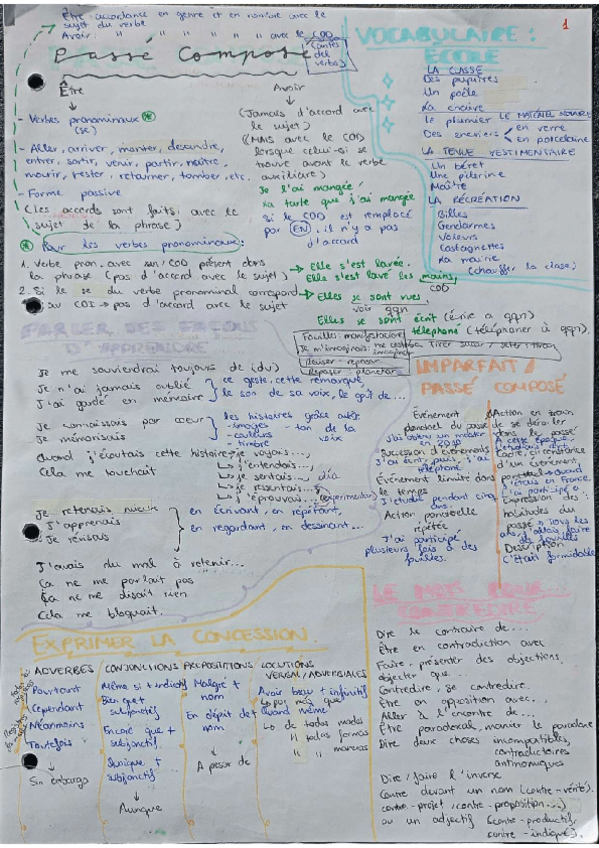 1
Être accordance en genre et en nombre avec le
sujet du verbe
Avoir: " " " " " " avec le COD
(antes del verbo)
Passé Composé
Être
Avoir
- Verbes pronominaux
(se)
- Aller, arriver, monter, descendre,
entrer, sortir, venir, partir, naître,
mourir, rester, retourner, tomber, etc.
- Forme passive
(Les accords sont faits avec le
sujet de la phrase)
(Jamais d'accord avec
le sujet)
(MAIS avec le COD
lorsque celui-si se
trouve avant le verbe
auxiliaire)
Je l'ai mangée
La tarte que j'ai mangée
Si le COD est remplacé
par EN, il n'y a pas
d'accord
Pour les verbes pronominaux:
1. Verbe pron. avec un COD présent dans
la phrase (pas d'accord avec le sujet)
2. Si le se du verbe pronominal correspond
au COI → pas d'accord avec le sujet
→ Elle s'est lavée.
Elle s'est lavé les mains
COD
→ Elles se sont vues
voir qqn
Elles se sont écrit (écrire a qqn)
téléphoné (téléphoner à qqn).
VOCABULAIRE:
ÉCOLE
LA CLASSE
Des pupitres
Un poêle
La chaire
LE MATÉRIEL SCOLAIRE
Le plumier
Des encriers en verre
en porcelaine
LA TENUE VESTIMENTAIRE
Un béret
Une pèlerine
Maître
LA RÉCRÉATION
Billes
Gendarmes
Voleurs
Castagnettes
La mairie
(chauffer la classe)
PARLER DES FAÇONS
D'APPRENDRE
Je me souviendrai toujours de (du)
Je n'ai jamais oublié
J'ai gardé en mémoire
ce geste, cette remarque,
le son de sa voix, le goût de...
Je connaissais par coeur
Je mémorisais
les histoires grâce aux:
- images - ton de la
- couleurs voix
- timbre
Quand j'écoutais cette histoire → je voyais...,
Cela me touchait
↳ j'entendais...,
↳ je sentais...,
↳ je ressentais...,
↳ j'éprouvais... (experimenter)
Je retenais mieux
J'apprenais
Je révisais
en écrivant, en répétant,
en regardant, en dessinant...
J'avais du mal à retenir...
Ça ne me parlait pas
Ça ne me disait rien
Cela me bloquait.
IMPARFAIT /
PASSÉ COMPOSÉ
Événement
ponctuel du passé
J'ai obtenu un master
en 2010
Succession d'événements
J'ai écrit, puis j'ai
téléphoné
Événement limité dans
le temps
J'étudié pendant cinq
ans.
Action ponctuelle
répétée
J'ai participé
plusieurs fois à des
fouilles.
Action en train
de se dérouler
dans le passé
Cadre, circonstance
d'un événement
ponctuel → quand
j'étais en France,
j'ai participé à
Expression des
habitudes du
passé → tous les
ans, j'allais faire
des fouilles
Description
C'était formidable
LE MOTS POUR
CONTREDIRE
Dire le contraire de...
Être en contradiction avec
Faire, présenter des objections,
objecter que...
Contredire, se contredire.
Être en opposition avec...
Aller à l'encontre de...
Être paradoxal, manier le paradoxe
Dire deux choses incompatibles,
contradictoires
antinomiques
Dire / faire l'inverse
Contre devant un nom (contre-vérité),
contre-projet, contre-proposition...)
ou un adjectif (contre-productif,
contre-indiqué).
EXPRIMER LA CONCESSION
ADVERBES
Pourtant
Cependant
Néanmoins
Toutefois
↓
Sin embargo
CONJONCTIONS
Même si + indicatif
Bien que +
subjonctif
Encore que +
subjonctif
Quoique +
subjonctif
↓
Aunque
PREPOSITIONS
Malgré +
nom
En dépit de +
nom
↓
A pesar de
LOCUTIONS
VERBAL/ADVERBIALES
Avoir beau + infinitif
↳ por más que
Quand même
↳ de todos modos
" todas formas
" " maneras